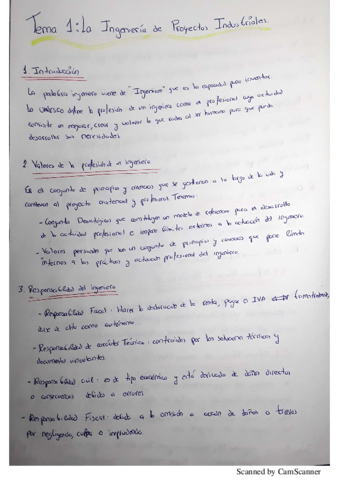 Tema 1: La Ingeniería de Proyectos Industriales.
1. Introducción
La palabra ingeniero viene de "Ingenium" que es la capacidad para inventar.
La UNESCO define la profesión de un ingeniero como el profesional cuya actividad
consiste en crear y valorar lo que rodea al ser humano para que pueda
desarrollar sus necesidades.
2. Valores de la profesión de un ingeniero
Es el conjunto de principios y creencias que se gestionan a lo largo de la vida y
conllevan al proyecto existencial y profesional. Tenemos:
- Conjunto Deontológico que constituyen un modelo de referencia para el desarrollo
de la actividad profesional e impone límites externos a la actuación del ingeniero
- Valores personales que son un conjunto de principios y creencias que pone límites
internos a las prácticas y actuación profesional del ingeniero.
3. Responsabilidad del ingeniero
- Responsabilidad Fiscal: Hacer la declaración de la renta, pagar el IVA
darse de alta como autónomo.
- Responsabilidad de carácter Teórica: por las soluciones técnicas y
documento
- Responsabilidad civil: es de tipo económico y está derivado de daños directos
o debido a errores
- Responsabilidad Fiscal: debido a la omisión o acción de daños a terceros
por negligencia, culpa o imprudencia.
Scanned by CamScanner